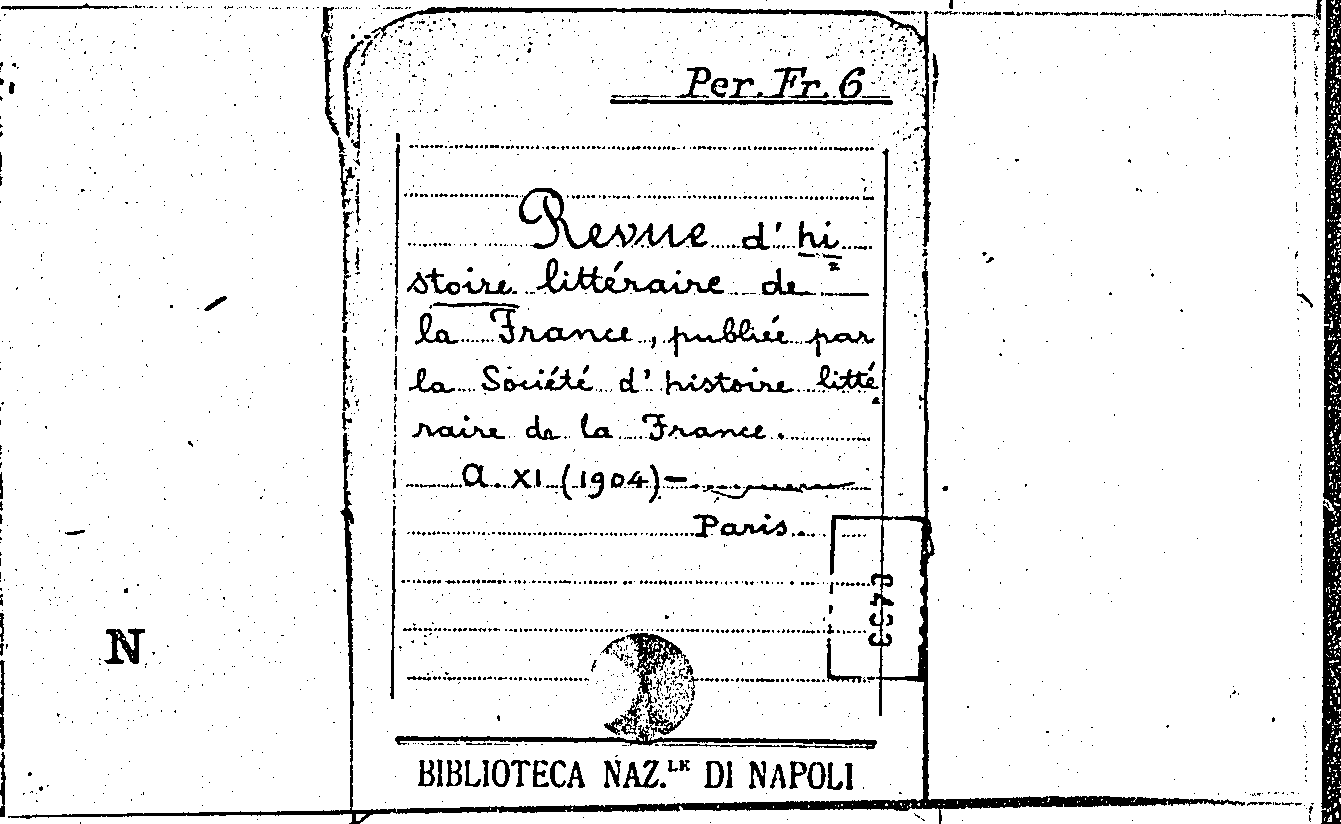 Per. Fr. 6
Revue d'hi
stoire littéraire de
la France, publiée par
la Société d'histoire litté
raire de la France.
A. XI (1904)-
Paris.
N
BIBLIOTECA NAZ.LE DI NAPOLI